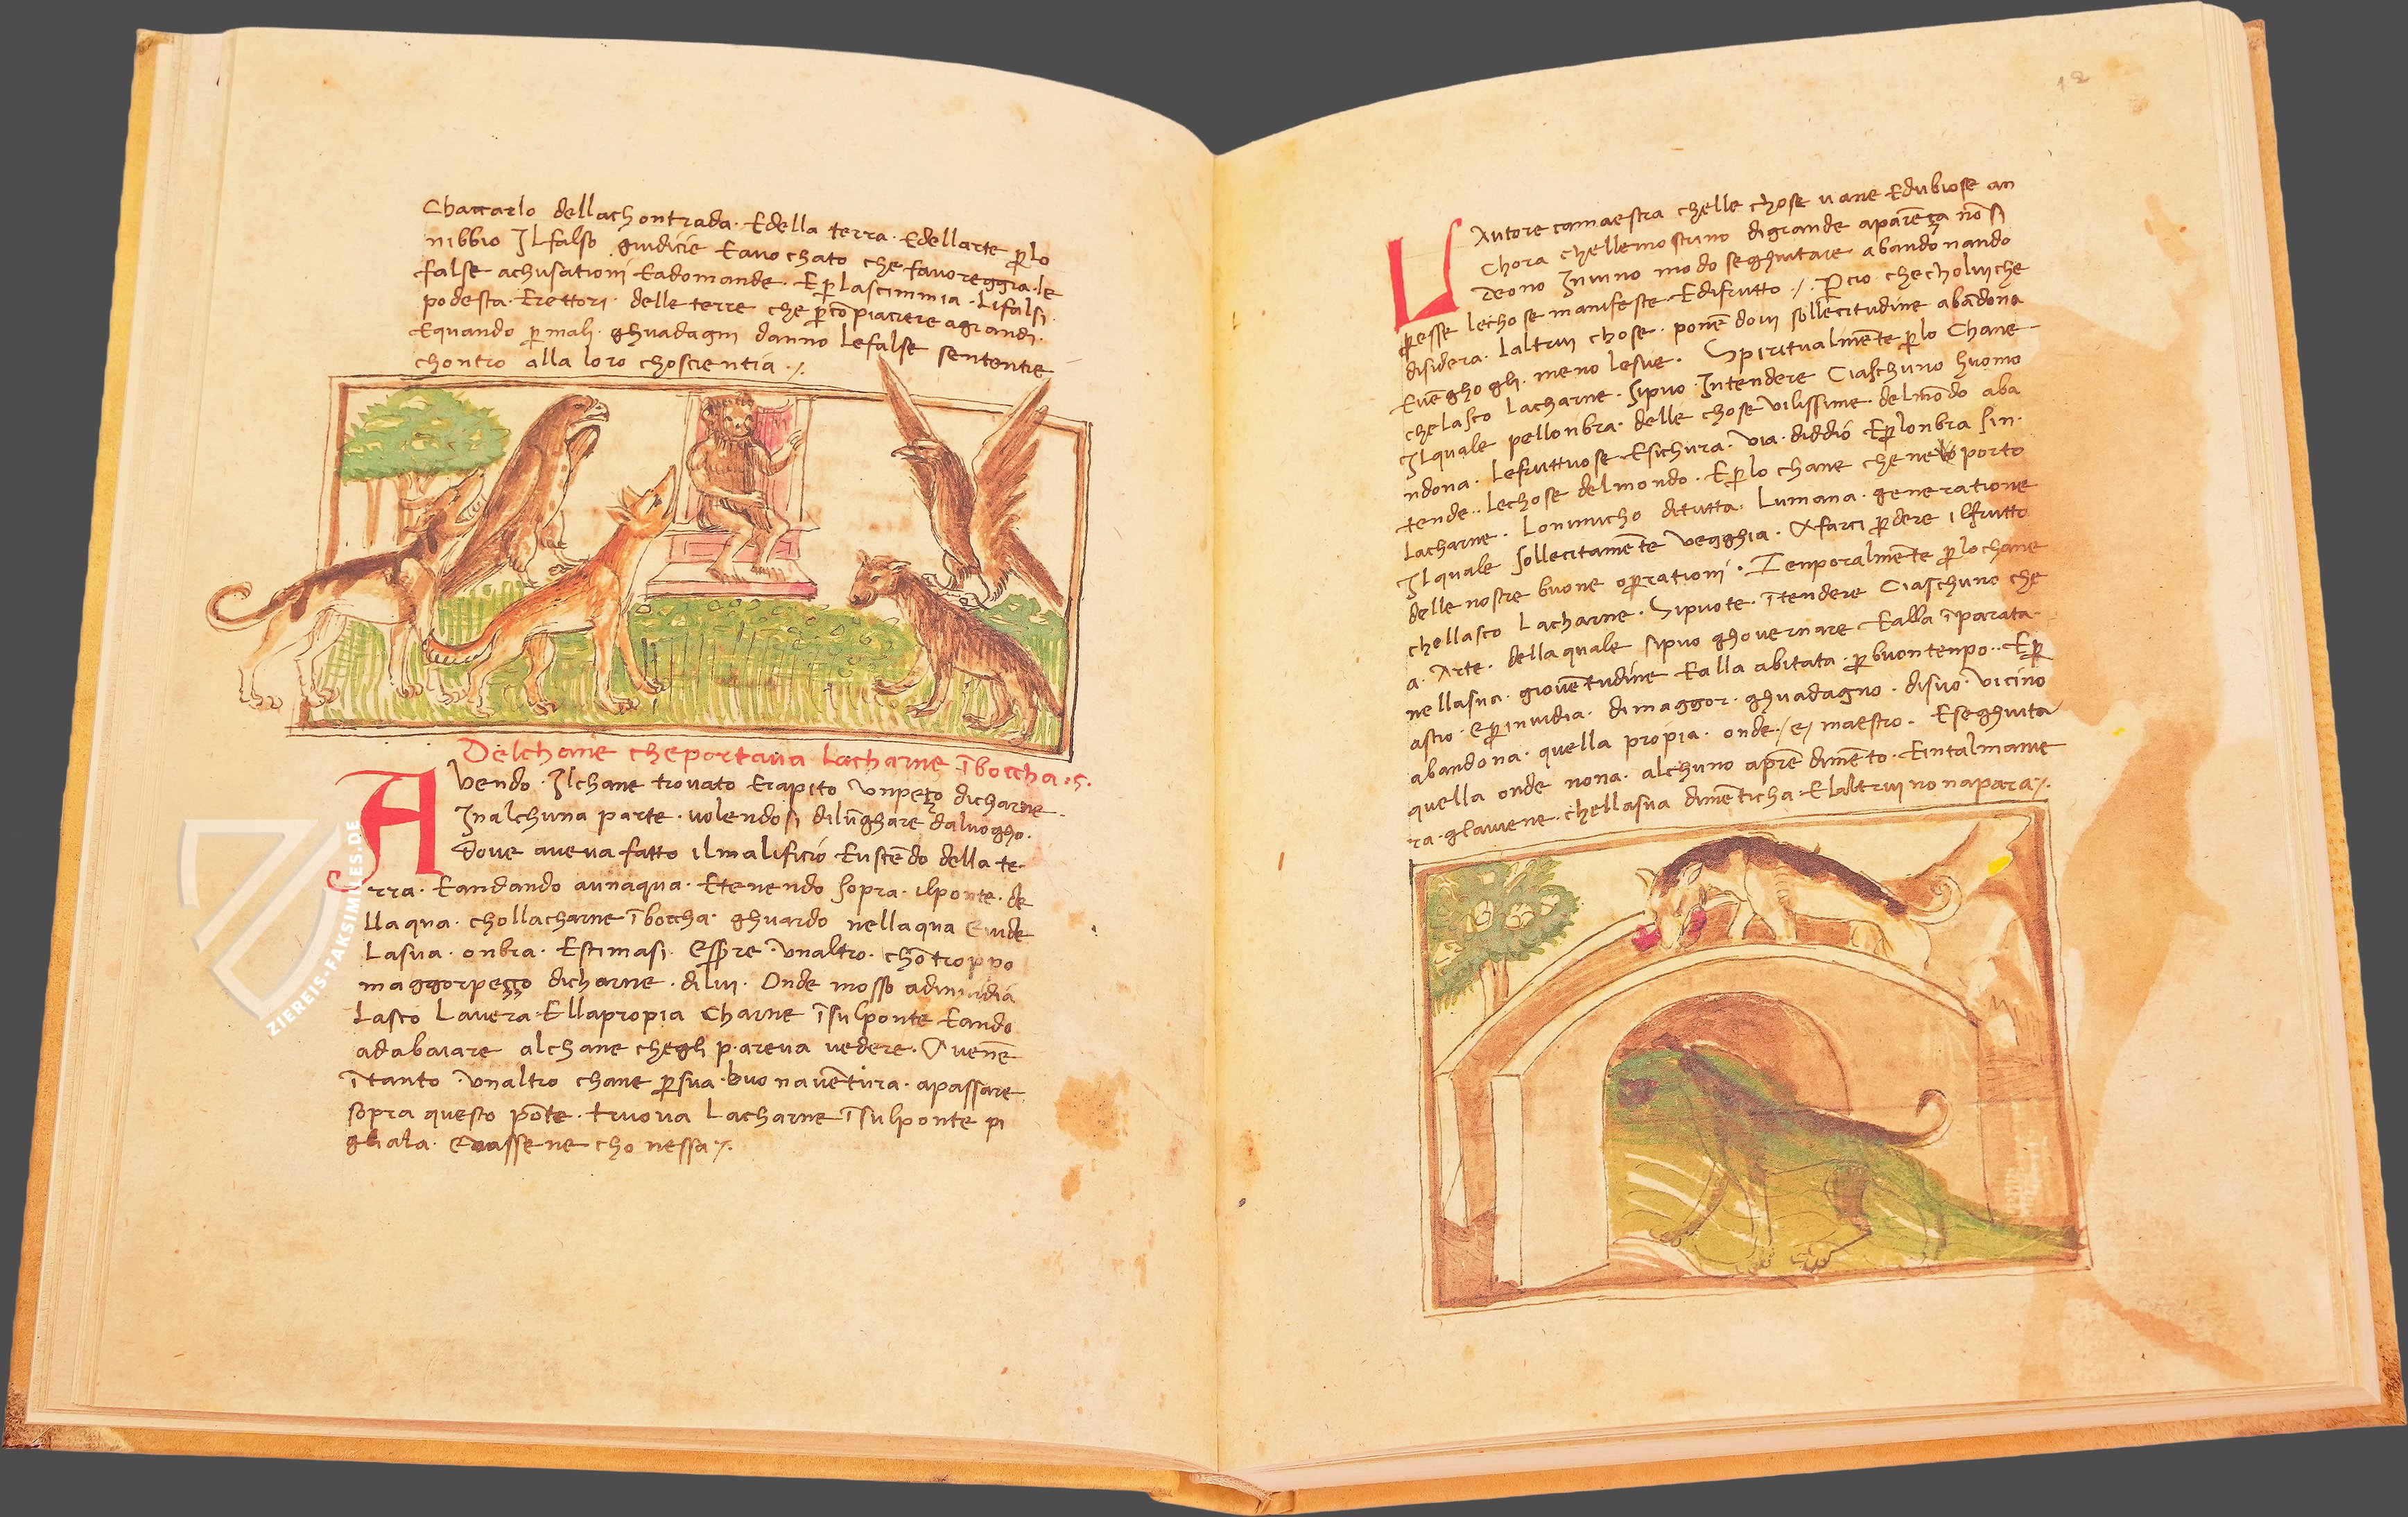 Chaccarlo dellachontrada · Edella terra · Edellarte p̲lo
nibbio Il falso giudicie Eavochato che favoreggia · le
false achusationi Eadomande · Ep̲ lascimmia · Lifalsi
podesta · Erettori · delle terre che p̲ cōpiacriere agrandi ·
Equando p̲ mali · ghuadagni danno Lefalse sententie
chontro alla loro choscientia ·/.
Delchane cheportava Lacharne īboccha · 5 ·
Avendo · Ilchane trovato Erapito unpeço dicharne ·
Inalchuna parte · volendosi dilūghare daluogho ·
Dove aveva fatto ilmalificio Euscēdo della te
rra · Eandando aunaqua · Etenendo sopra · ilponte · de
llaqua · chollacharne īboccha · ghuardo nellaqua Evide
Lasua · onbra · Estimasi · Esp̲re · unaltro · chō troppo
maggorpeçço dicharne · dilui · Onde mosso adinvidia
Lascio Lavera · Ellapropia Charne īsulponte Eando
adabaiare alchane chegli pareva vedere · Avenē
ītanto · unaltro chane p̲sua · buonavētura · apassare
sopra questo pōte · truova Lacharne īsulponte pi
ghiala · Evassene chonessa ·/.
12
LAutore camaestra chelle chose vane Edubiose an
Chora chellemostrino digrande aparēça nō si
deono Inniuno modo seghuitare abandonando
p̲esse lechose manifeste · Edifrutto ·/. P̲cio · checholuiche
disidera · Laltrui chose · ponēdovi sollecitudine abādona
Evēghogli · meno lesue · Spiritualmēte p̲lo Chane
chelascio Lacharne · sipuo · Intendere Ciaschuno huomo
Ilquale pellonbra · delle chose vilissime · delmōdo aba
ndona · Lefruttuose · Esichura · via · diddio Ep̲lonbra sin
tende · · lechose delmondo · Ep̲lo chane che nelo porto
Lacharne · Lonimicho ditutta · Lumana · generatione
Ilquale sollecitamēte vegghia · Afarci p̲dere ilfrutto
delle nostre buone op̲rationi · Tenporalmēte p̲lo chane
chellascio Lacharne · Sipuote · ītendere Ciaschuno che
a · Arte · dellaquale sipuo ghovernare Ealla īparata
nellasua · giovētudine Ealla abitata · p̲buontenpo · · Ep̲
astio · Ep̲invidia · dimaggor · ghuadagno · disuo · vicino
abandona · quella propia · onde /e/ maestro · Eseghuita
quella onde nona · alchuno aprēdimēto · Eintalmanie
ra · glaviene · chellasua dimēticha · Elaltrui nonapara ·/.
ZIEREIS-FAKSIMILES.DE